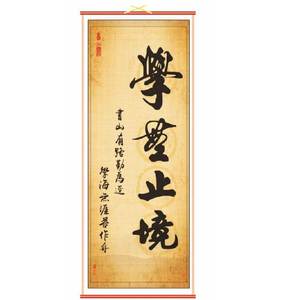 學無止境
書山有路勤為徑
學海無涯苦作舟